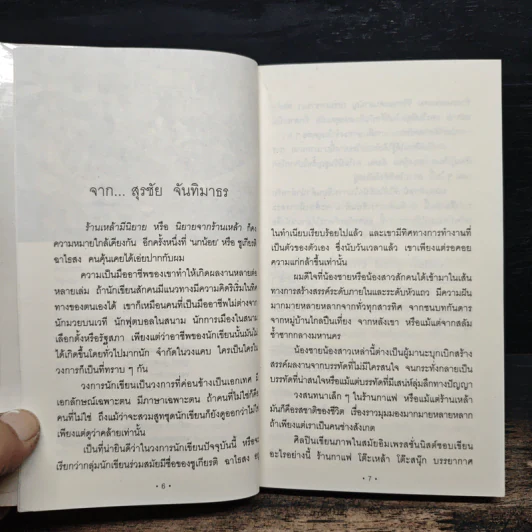 จาก... สุรชัย จันทิมาธร
ร้านเหล้ามีนิยาย หรือ นิยายจากร้านเหล้า ก็คง
ความหมายใกล้เคียงกัน อีกครั้งหนึ่งที่ 'นกน้อย' หรือ ชูเกียรติ
ฉาไธสง คนคุ้นเคยได้เอ่ยปากกับผม
ความเป็นมืออาชีพของเขาทำให้เกิดผลงานหลายต่อ
หลายเล่ม ถ้านักเขียนสักคนมีแนวทางมีความคิดริเริ่มในทิศ
ทางของตนเองได้ เขาก็เหมือนคนที่เป็นมืออาชีพไม่ต่างจาก
นักมวยบนเวที นักฟุตบอลในสนาม นักการเมืองในสนาม
เลือกตั้งหรือรัฐสภา เพียงแต่ว่าอาชีพของนักเขียนนั้นมันไม่
ได้เกิดขึ้นโดยทั่วไปมากนัก จำกัดในวงแคบ ใครเป็นใครใน
วงการก็เป็นที่ทราบ ๆ กัน
วงการนักเขียนเป็นวงการที่ค่อนข้างเป็นเอกเทศ มี
เอกลักษณ์เฉพาะตน มีภาษาเฉพาะตน ถ้าคนที่ไม่ใช่ก็คือ
คนที่ไม่ใช่ ถึงแม้ว่าจะสวมสูทชุดนักเขียนก็ยังดูออกว่าไม่ใช่
เพียงแต่ดูว่าคล้ายเท่านั้น
เป็นที่น่ายินดีว่าในวงการนักเขียนปัจจุบันนี้ หรือจะ
เรียกว่ากลุ่มนักเขียนร่วมสมัยมีชื่อของชูเกียรติ ฉาไธสง
• 6 •
ในทำเนียบเรียบร้อยไปแล้ว และเขามีทิศทางการทำงานที่
เป็นตัวของตัวเอง ซึ่งนับวันเวลาแล้ว เขาเพียงแต่รอคอย
ความแก่กล้าขึ้นเท่านั้น
ผมดีใจที่น้องชายหรือน้องสาวสักคนได้เข้ามาในเส้น
ทางการสร้างสรรค์ระดับภายในและระดับหัวแถว มีความฝัน
มากมายหลายหลากจากทั่วทุกสารทิศ จากชนบทกันดาร
จากหมู่บ้านไกลปืนเที่ยง จากหลังเขา หรือแม้แต่จากสลัม
ซ้ำซากกลางมหานคร
น้องชายน้องสาวเหล่านี้ต่างเป็นผู้มานะบุกเบิกสร้าง
สรรค์ผลงานจากบรรทัดที่ไม่มีใครสนใจ จนกระทั่งกลายเป็น
บรรทัดที่น่าสนใจหรือแม้แต่บรรทัดที่มีเสน่ห์ลุ่มลึกทางปัญญา
วงสนทนาเล็ก ๆ ในร้านกาแฟ หรือแม้แต่ร้านเหล้า
มันก็คือรสชาติของชีวิต เรื่องราวมุมมองมากมายหลายหลาก
ถ้าเพียงแต่เราเป็นคนช่างสังเกต
ศิลปินเขียนภาพในสมัยอิมเพรสชั่นนิสต์ชอบเขียน
อะไรอย่างนี้ ร้านกาแฟ โต๊ะเหล้า โต๊ะสนุ้ก บรรยากาศ
• 7 •